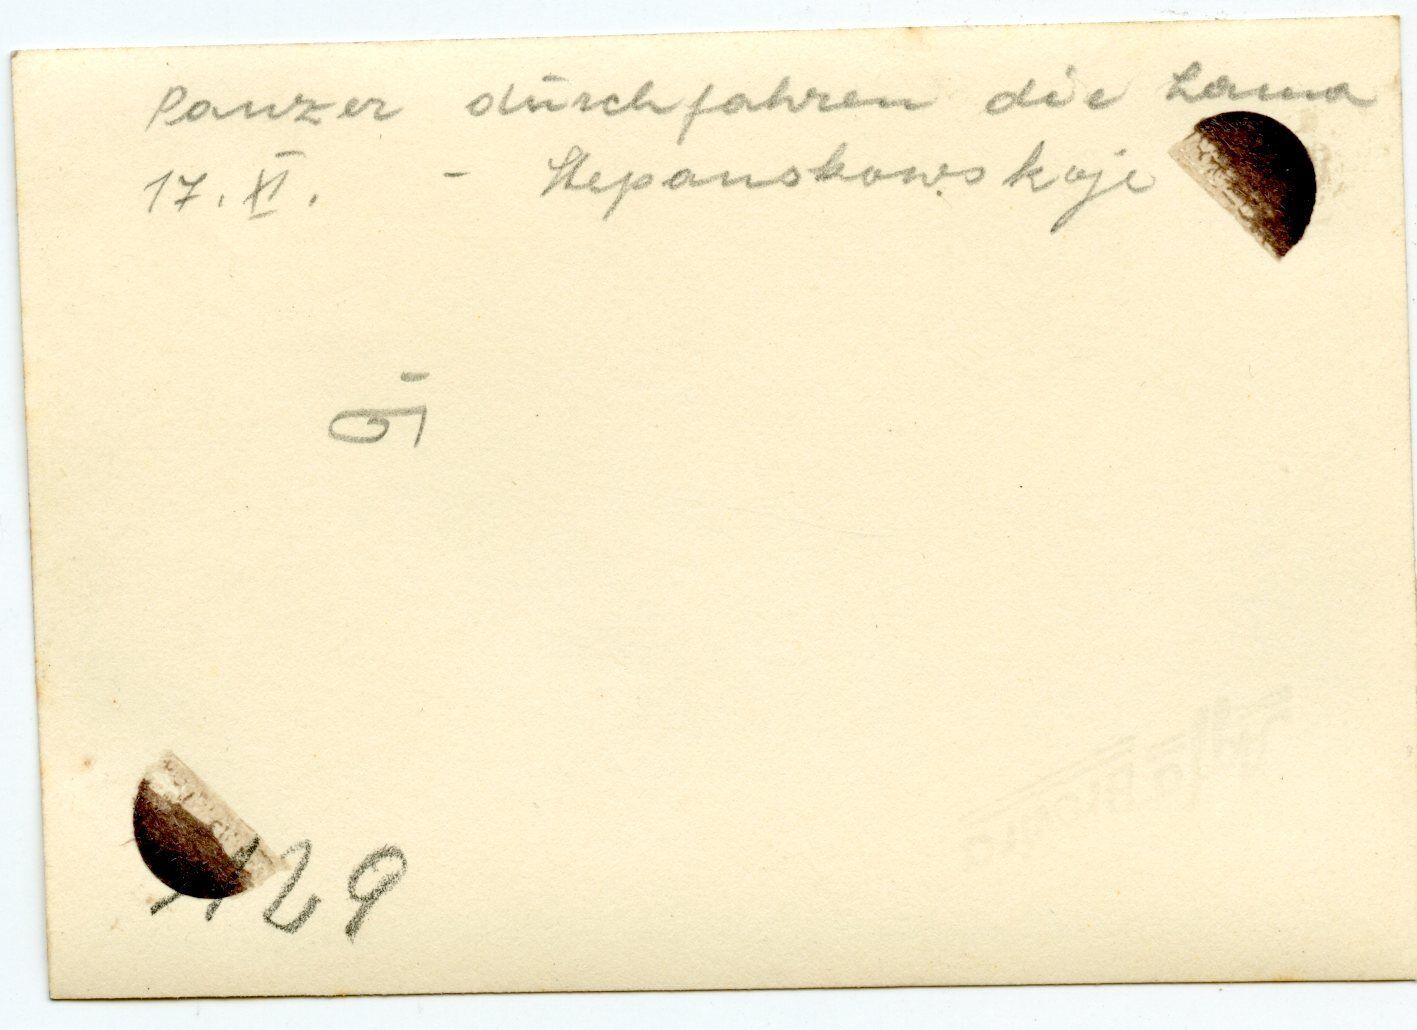 Panzer durchfahren die Lama
17. XI. - Stepankowskoje
129